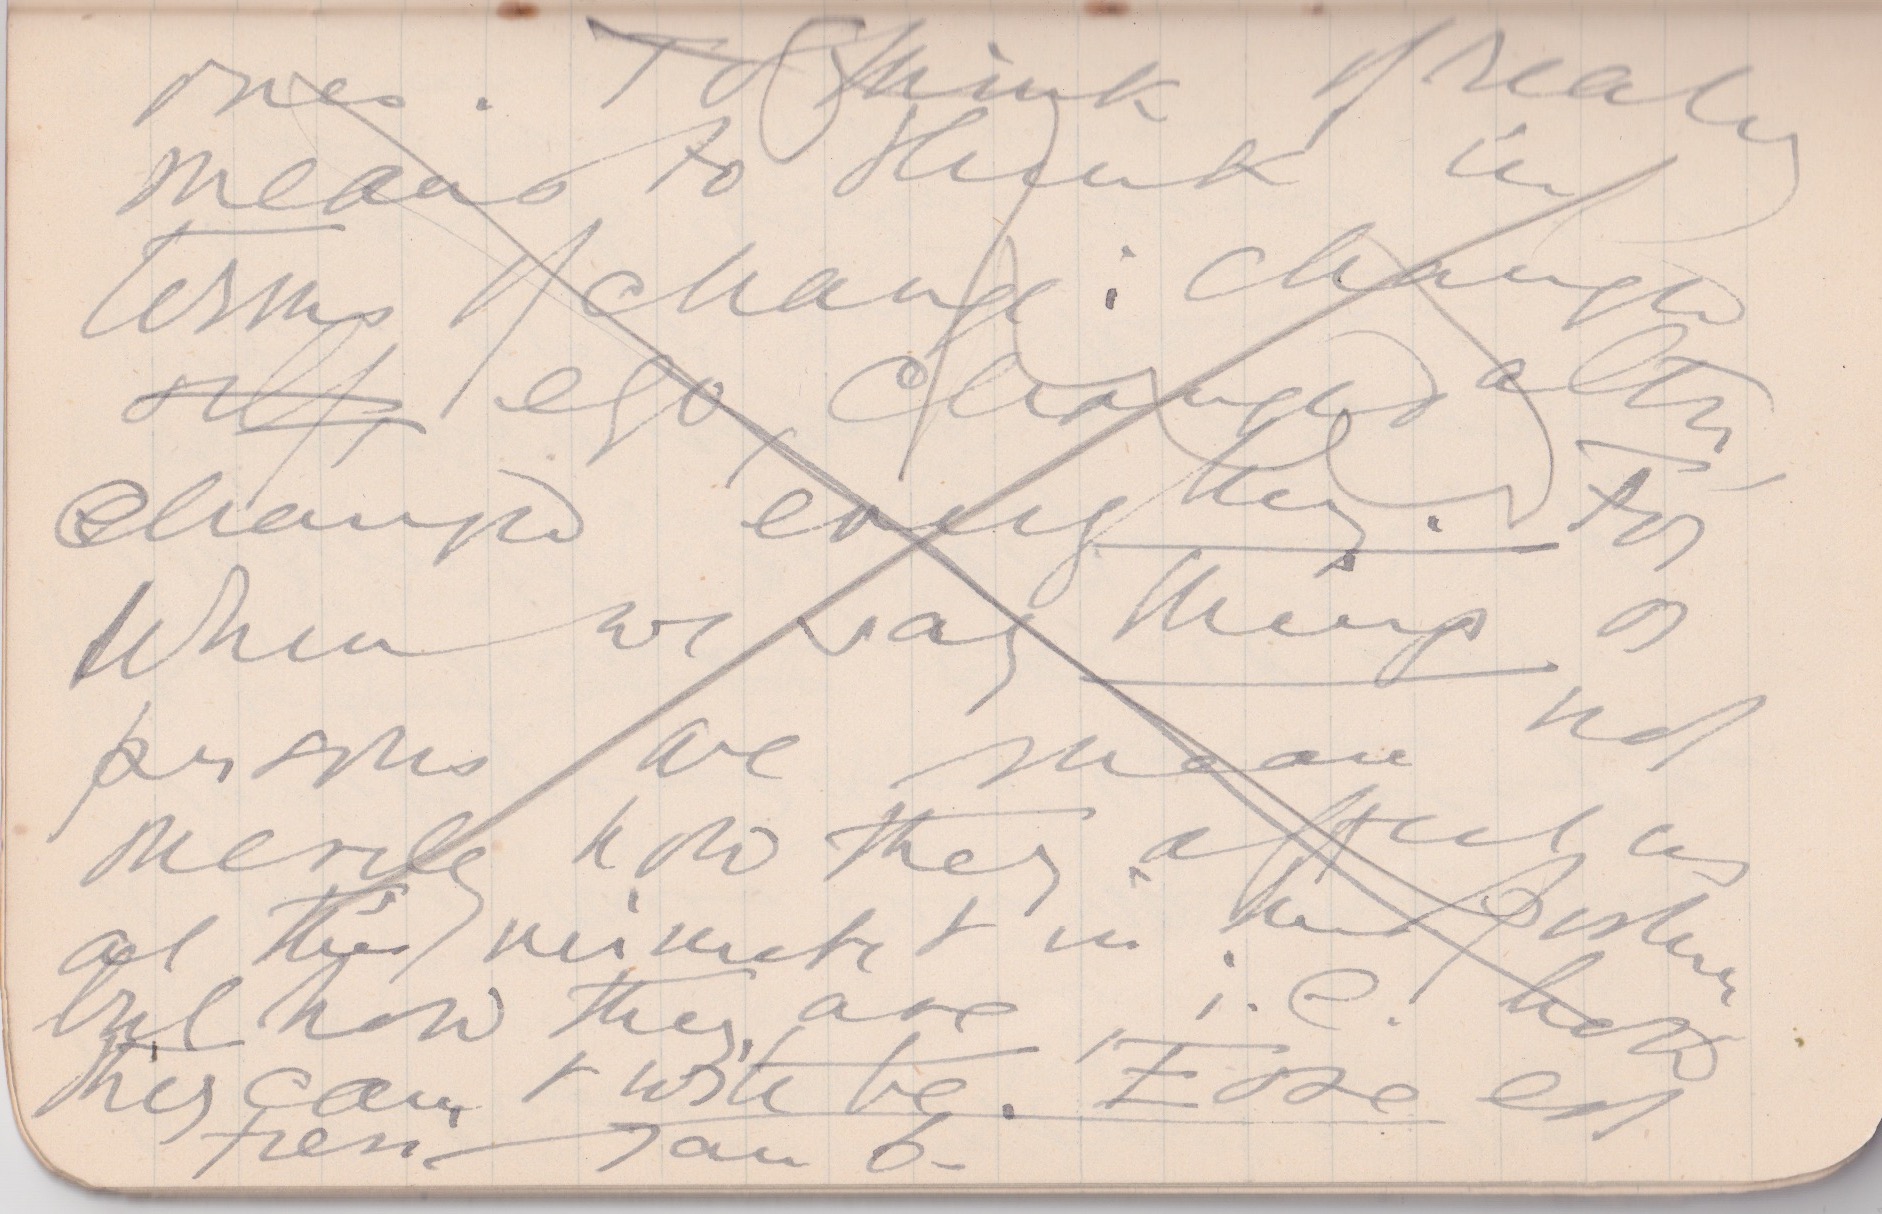 ones. To think of realy
means to think in
terms of change; changes
self, ego, changes alter,
changes everything. For
when we say things or
persons we mean not
merely how they affect us
at this minute & in this
but how they are i.e. how
they can & will be. Esse est
Jan 6-